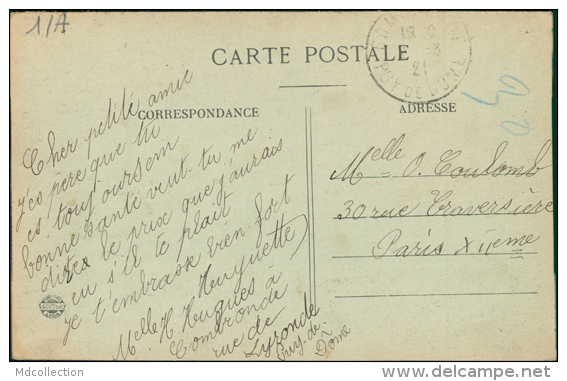 1/A
CARTE POSTALE
CORRESPONDANCE
ADRESSE
Cher petite amie
J'espère que tu
es touj oursem
bonne santé veut-tu me
direz le prix que j'aurais
eu s'il te plait
je t'embrasse bien fort
Huguette
Melle H. Hugues à
Combronde
rue de
Lyzonde
Puy-de-
Dôme
Melle O. Coulomb
30 rue Traversière
Paris XIIeme
21
PUY DE DOME
Mdcollection
delcampe.net